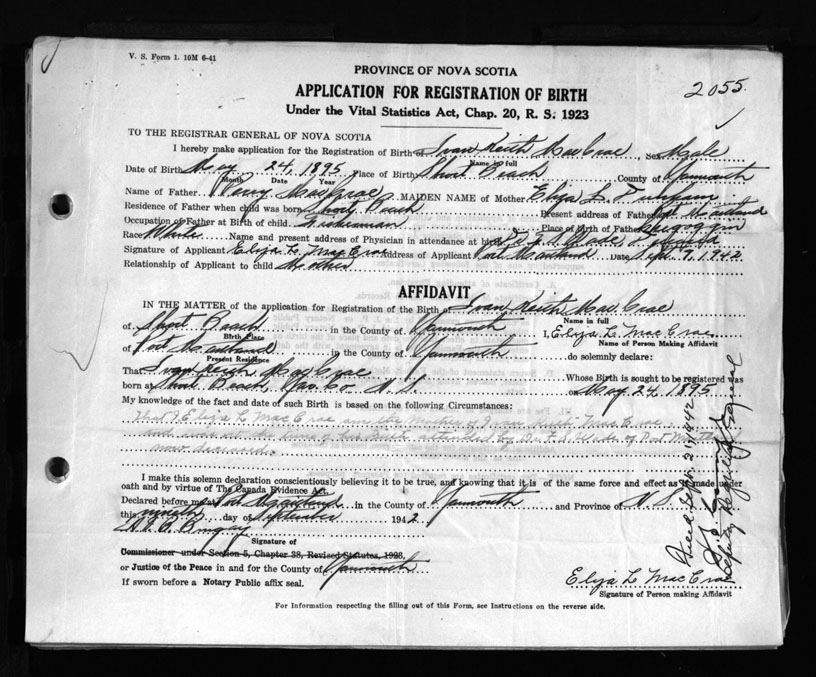 V. S. Form 1. 10M 6-41
PROVINCE OF NOVA SCOTIA
APPLICATION FOR REGISTRATION OF BIRTH
2055
Under the Vital Statistics Act, Chap. 20, R. S. 1923
TO THE REGISTRAR GENERAL OF NOVA SCOTIA
I hereby make application for the Registration of Birth of Ivan Keith MacCrae Sex Male
Name in full
Date of Birth May 24, 1895 Place of Birth Short Beach County of Yarmouth
Month Date Year
Name of Father Percy MacCrae MAIDEN NAME of Mother Eliza L.
Residence of Father when child was born Short Beach Present address of Father Pt Maitland
Occupation of Father at Birth of child Fisherman Place of Birth of Father
Race White Name and present address of Physician in attendance at birth
Signature of Applicant Eliza L. MacCrae Address of Applicant Port Maitland Date Sept. 9, 1942
Relationship of Applicant to child Mother
AFFIDAVIT
IN THE MATTER of the application for Registration of the Birth of Ivan Keith MacCrae
Name in full
of Short Beach in the County of Yarmouth I, Eliza L. MacCrae
Birth Place
Name of Person Making Affidavit
of Port Maitland in the County of Yarmouth do solemnly declare:
Present Residence
That Ivan Keith MacCrae Whose Birth is sought to be registered was
born at Short Beach Yar. Co. N. S. on May 24, 1895
My knowledge of the fact and date of such Birth is based on the following Circumstances:
That I Eliza L MacCrae am the Mother of Ivan Keith MacCrae
and was at the time of his birth attended by Dr. F. A. Wade of Port Maitland
now deceased.
I make this solemn declaration conscientiously believing it to be true, and knowing that it is of the same force and effect as if made under
oath and by virtue of The Canada Evidence Act.
Declared before me at Port Maitland in the County of Yarmouth and Province of N. S.
this ninth day of September 1942
Signature of
Commissioner under Section 5, Chapter 38, Revised Statutes, 1923,
or Justice of the Peace in and for the County of Yarmouth
If sworn before a Notary Public affix seal.
Eliza L MacCrae
Signature of Person making Affidavit
For Information respecting the filling out of this Form, see Instructions on the reverse side.
Filed Sept. 21, 1942
Deputy Registrar General